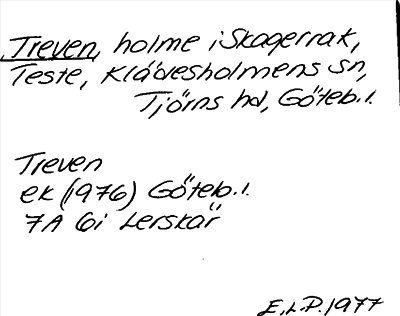 Treven, holme i Skagerrak,
Teste, Klädesholmens sn,
Tjörns hd, Göteb. l.
Treven
ek (1976) Göteb. l.
7A 6i Lerskär
E.L.P. 1977